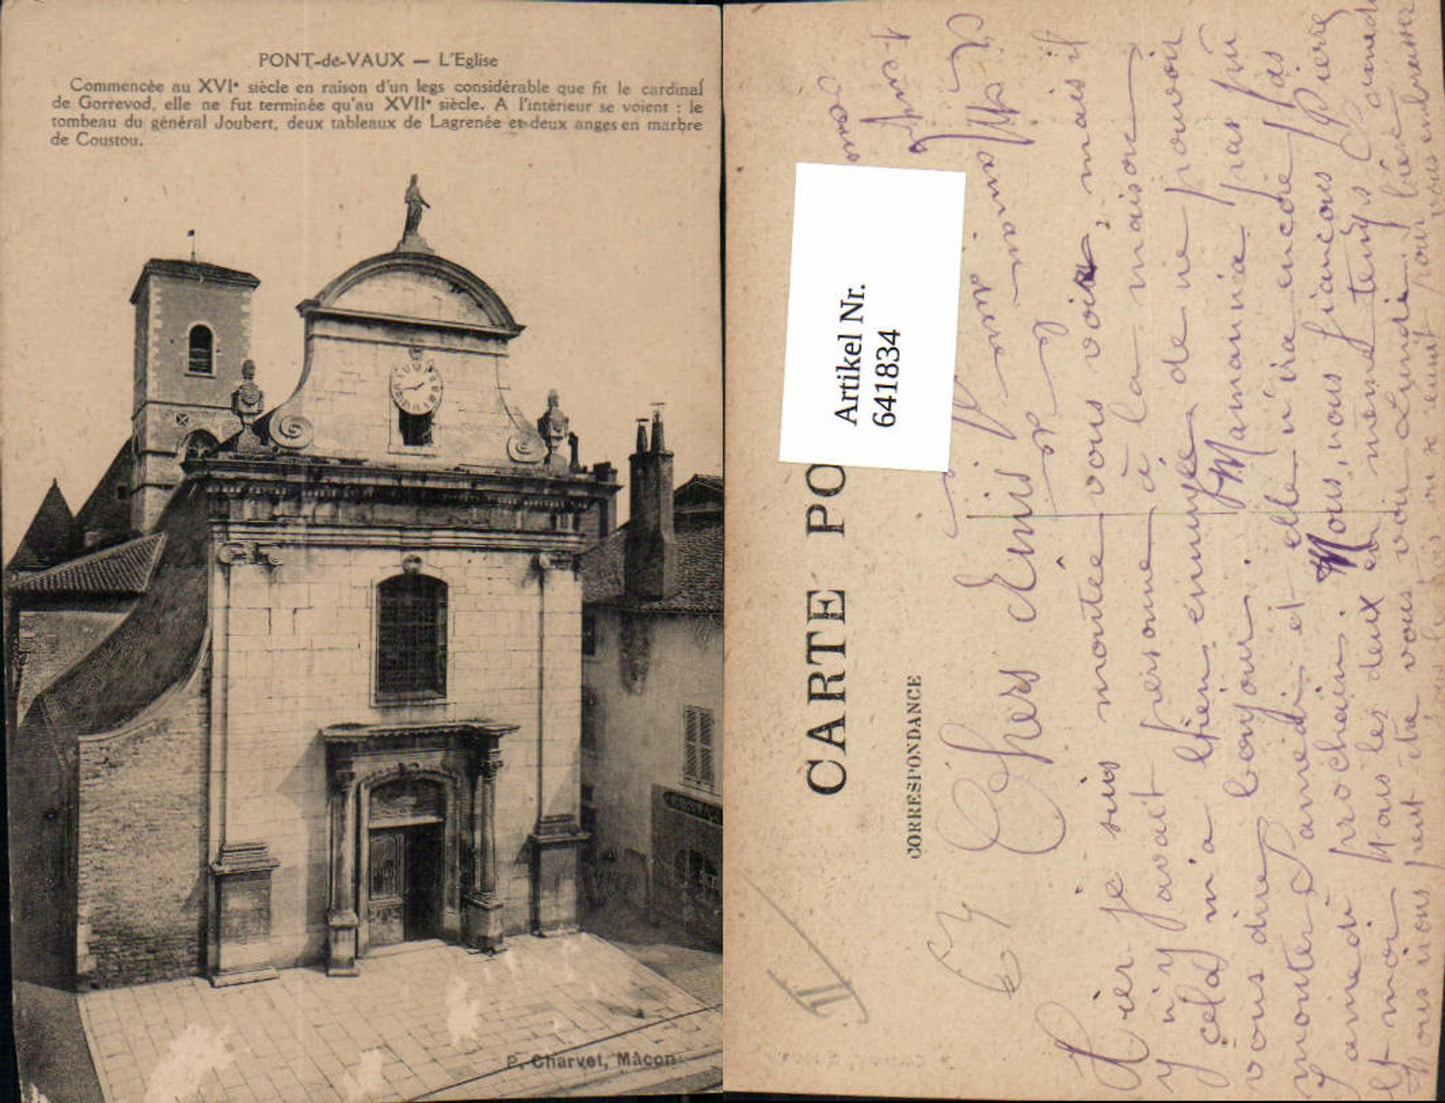 PONT-de-VAUX — L'Eglise
Commencée au XVIe siècle en raison d'un legs considérable que fit le cardinal
de Gorrevod, elle ne fut terminée qu'au XVIIe siècle. A l'intérieur se voient : le
tombeau du général Joubert, deux tableaux de Lagrenée et deux anges en marbre
de Coustou.
P. Charvet, Mâcon
Artikel Nr.
641834
CARTE PO
CORRESPONDANCE
II
64
Chers Amis
Hier je suis montée vous voir, mais il
n'y avait personne à la maison
cela m'a bien ennuyée de ne pouvoir
vous dire bonjour. Maman n'a pas pu
monter Samedi et elle n'ira encore pas
Samedi prochain. Nous, nous fiançons Pierre
et moi les deux en même temps
Nous irons peut-être vous voir Lundi